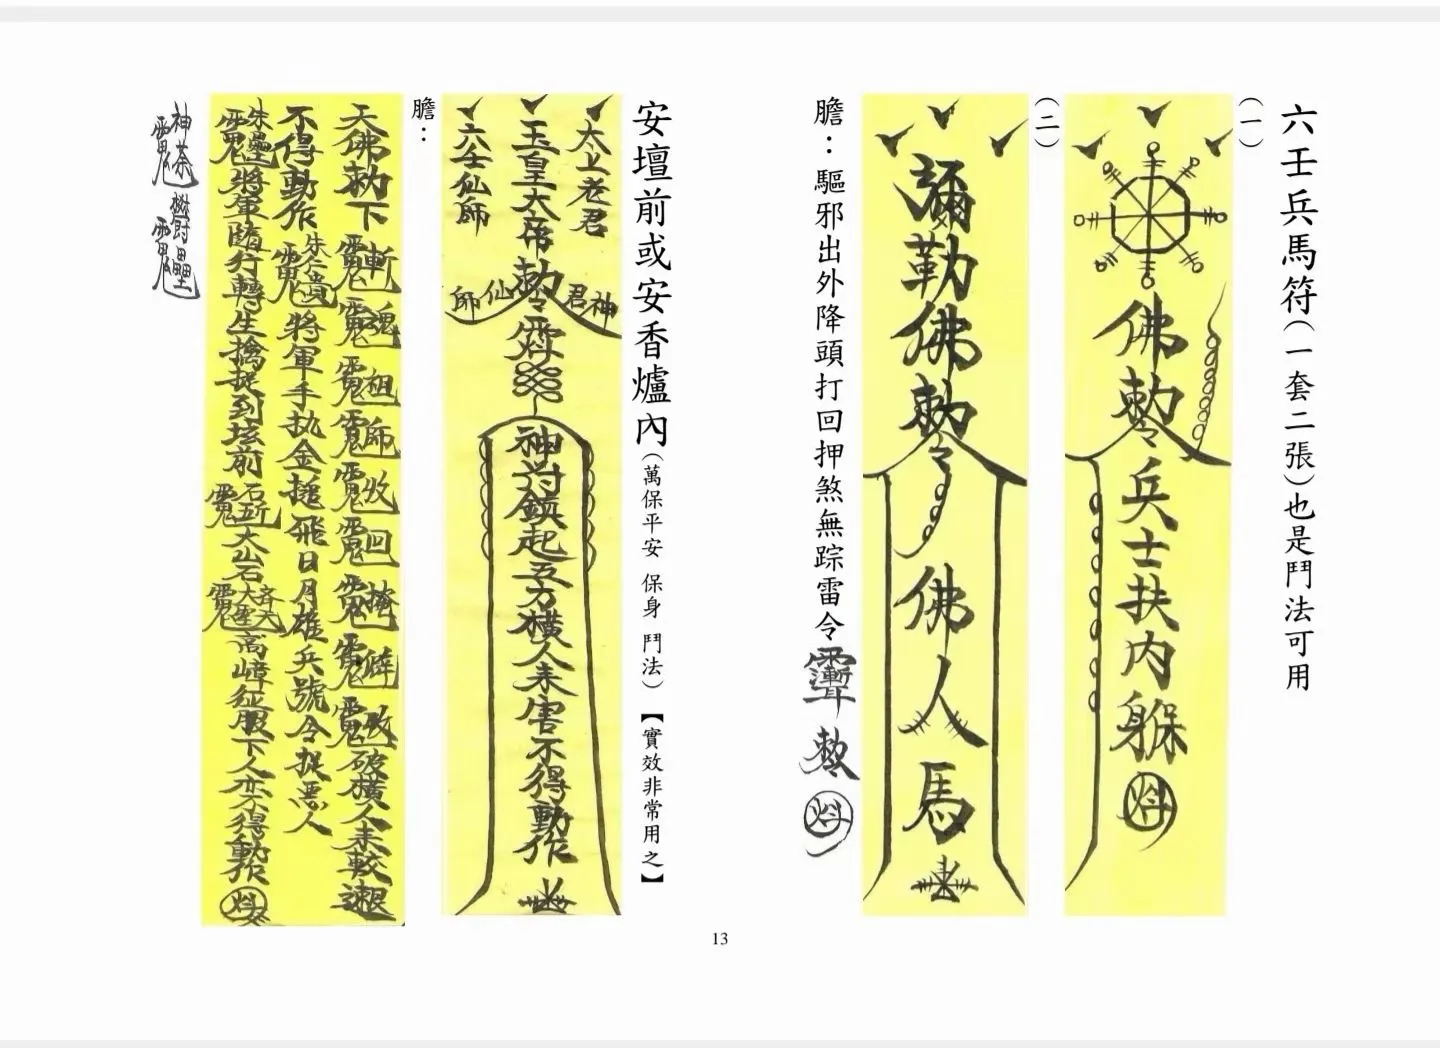 六壬兵馬符（一套二張）也是鬥法可用
（一）
佛敕令兵士扶內躲
（二）
彌勒佛敕令佛人馬
膽：驅邪出外降頭打回押煞無踪雷令
敕令
安壇前或安香爐內（萬保平安 保身 鬥法）【實效非常用之】
太上老君
玉皇大帝敕令
六壬仙師
神君
仙師
神符鎮起五方橫人來害不得動作
膽：
天佛勅下 斬 魂 祖 師 收 回 破橫人來較
不得動作 朱仁貴 將軍手执金搥飛日月雄兵號令捉惡人
將軍隨行轉生擒捉到坛前 大山石 齊天大聖 高嶂征服下人亦不得動作
神荼
鬱壘
13